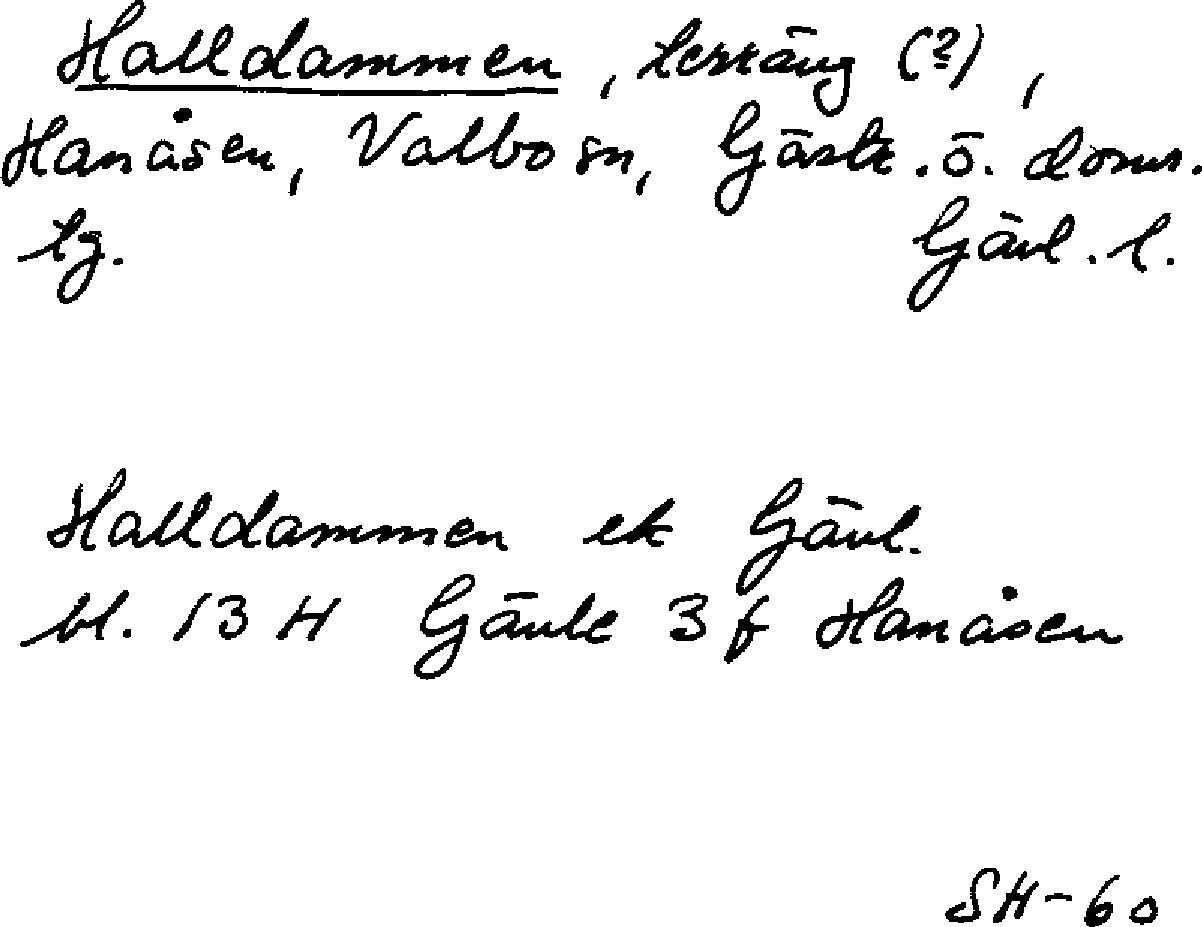 Halldammen, terräng (?),
Hanåsen, Valbo sn, Gästr. ö. doms.
tg. Gävl. l.
Halldammen ek Gävl.
bl. 13 H Gävle 3 f Hanåsen
SH-60